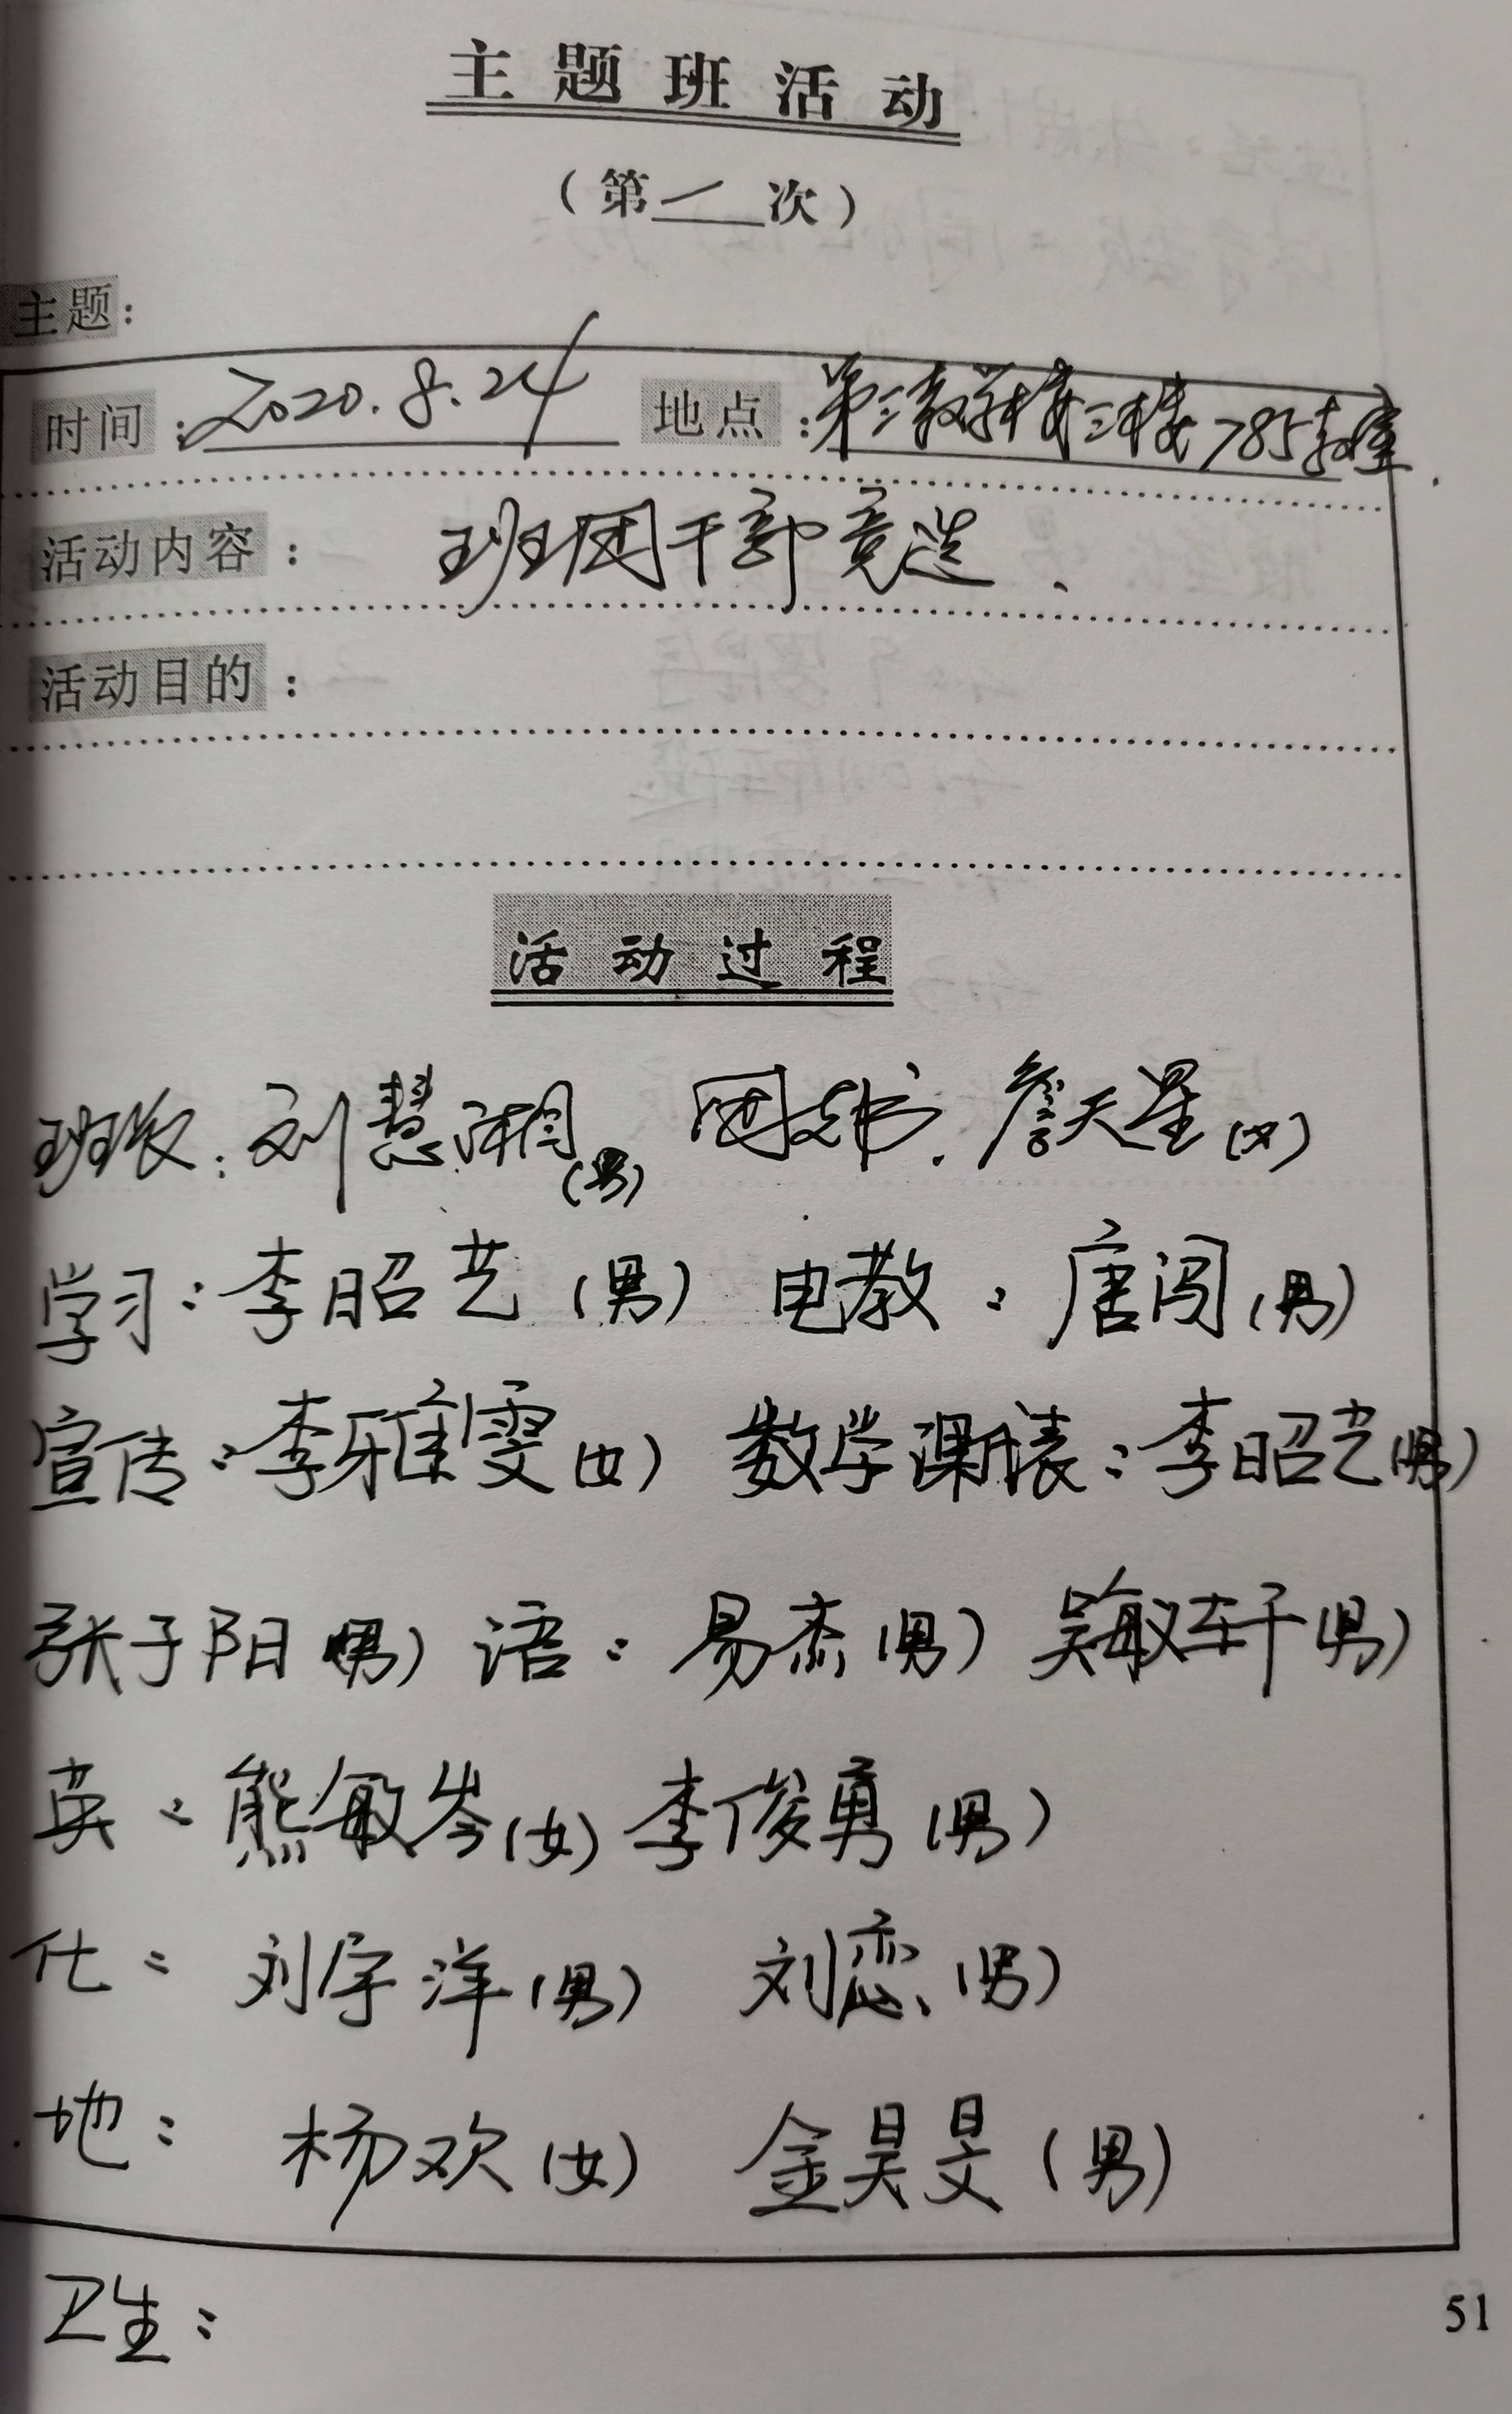 主题班活动
（第一次）
主题：
时间：2020.8.24 地点：第三教学楼三楼785教室.
活动内容：班团干部竞选.
活动目的：
活动过程
班长：刘慧湘(男) 团支书.詹天星(女)
学习：李昭艺(男) 电教：唐闯(男)
宣传：李雅雯(女) 数学课代表：李昭艺(男)
张子阳(男) 语：易杰(男) 吴敏轩(男)
英：熊敏岑(女) 李俊勇(男)
化：刘宇洋(男) 刘恋(男)
地：杨欢(女) 金昊旻(男)
卫生：
51